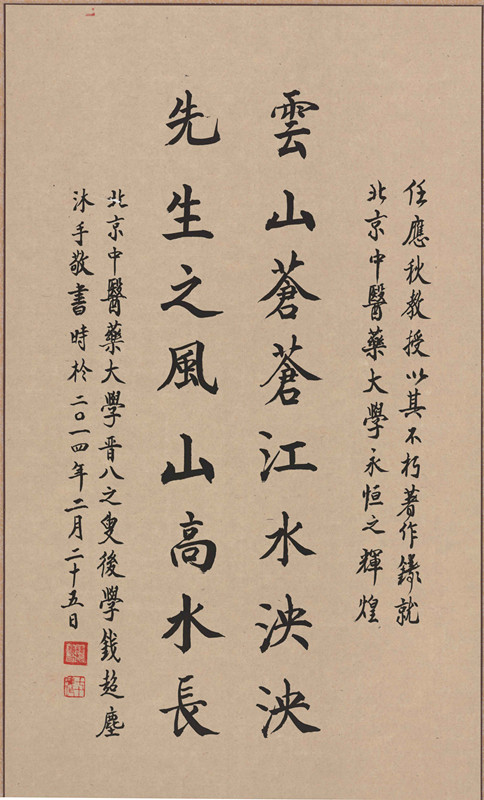 任應秋教授以其不朽著作鑄就
北京中醫藥大學永恒之輝煌
雲山蒼蒼江水泱泱
先生之風山高水長
北京中醫藥大學晋八之叟後學錢超塵
沐手敬書時於二〇一四年二月二十五日